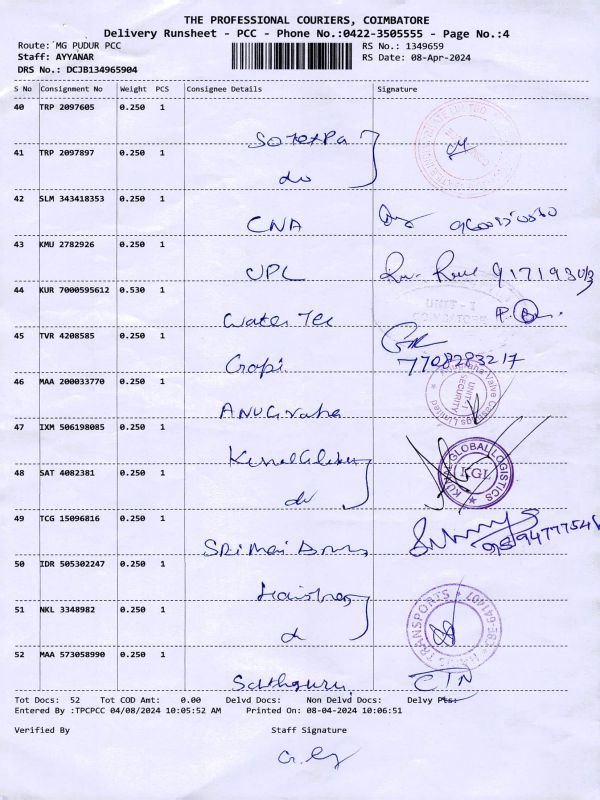 THE PROFESSIONAL COURIERS, COIMBATORE
Delivery Runsheet - PCC - Phone No.:0422-3505555 - Page No.:4
Route: MG PUDUR PCC
RS No.: 1349659
Staff: AYYANAR
RS Date: 08-Apr-2024
DRS No.: DCJB134965904
S No Consignment No Weight PCS Consignee Details Signature
40 TRP 2097605 0.250 1
41 TRP 2097897 0.250 1
do
42 SLM 343418353 0.250 1
CNA
43 KMU 2782926 0.250 1
UPL
44 KUR 7000595612 0.530 1
UNIT - I
Water Tec
45 TVR 4208585 0.250 1
Gopi 7708283217
46 MAA 200033770 0.250 1
UNIT-I SECURITY
Valve Castings Limited
ANUGraha
47 IXM 506198085 0.250 1
GLOBAL LOGISTICS
KGL
48 SAT 4082381 0.250 1
do
49 TCG 15096816 0.250 1
50 IDR 505302247 0.250 1
51 NKL 3348982 0.250 1
TRANSPORTS
52 MAA 573058990 0.250 1
Sathguru CTN
Tot Docs: 52 Tot COD Amt: 0.00 Delvd Docs: Non Delvd Docs: Delvy Pts:
Entered By :TPCPCC 04/08/2024 10:05:52 AM Printed On: 08-04-2024 10:06:51
Verified By Staff Signature